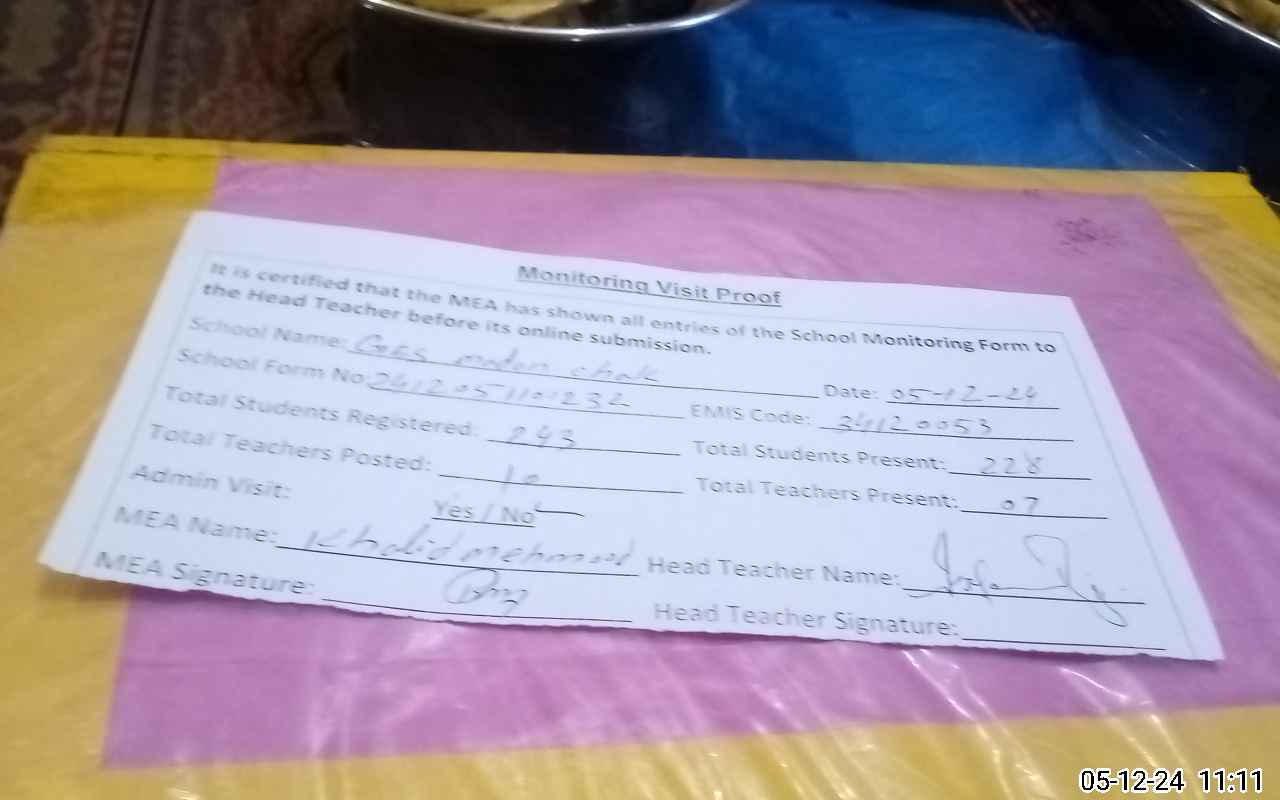 Monitoring Visit Proof
It is certified that the MEA has shown all entries of the School Monitoring Form to
the Head Teacher before its online submission.
School Name: chak Date: 05-12-24
School Form No: EMIS Code: 34120053
Total Students Registered: 243 Total Students Present: 228
Total Teachers Posted: 10 Total Teachers Present: 07
Admin Visit: Yes / No
MEA Name: Khalid mehmood Head Teacher Name:
MEA Signature: Head Teacher Signature:
05-12-24 11:11